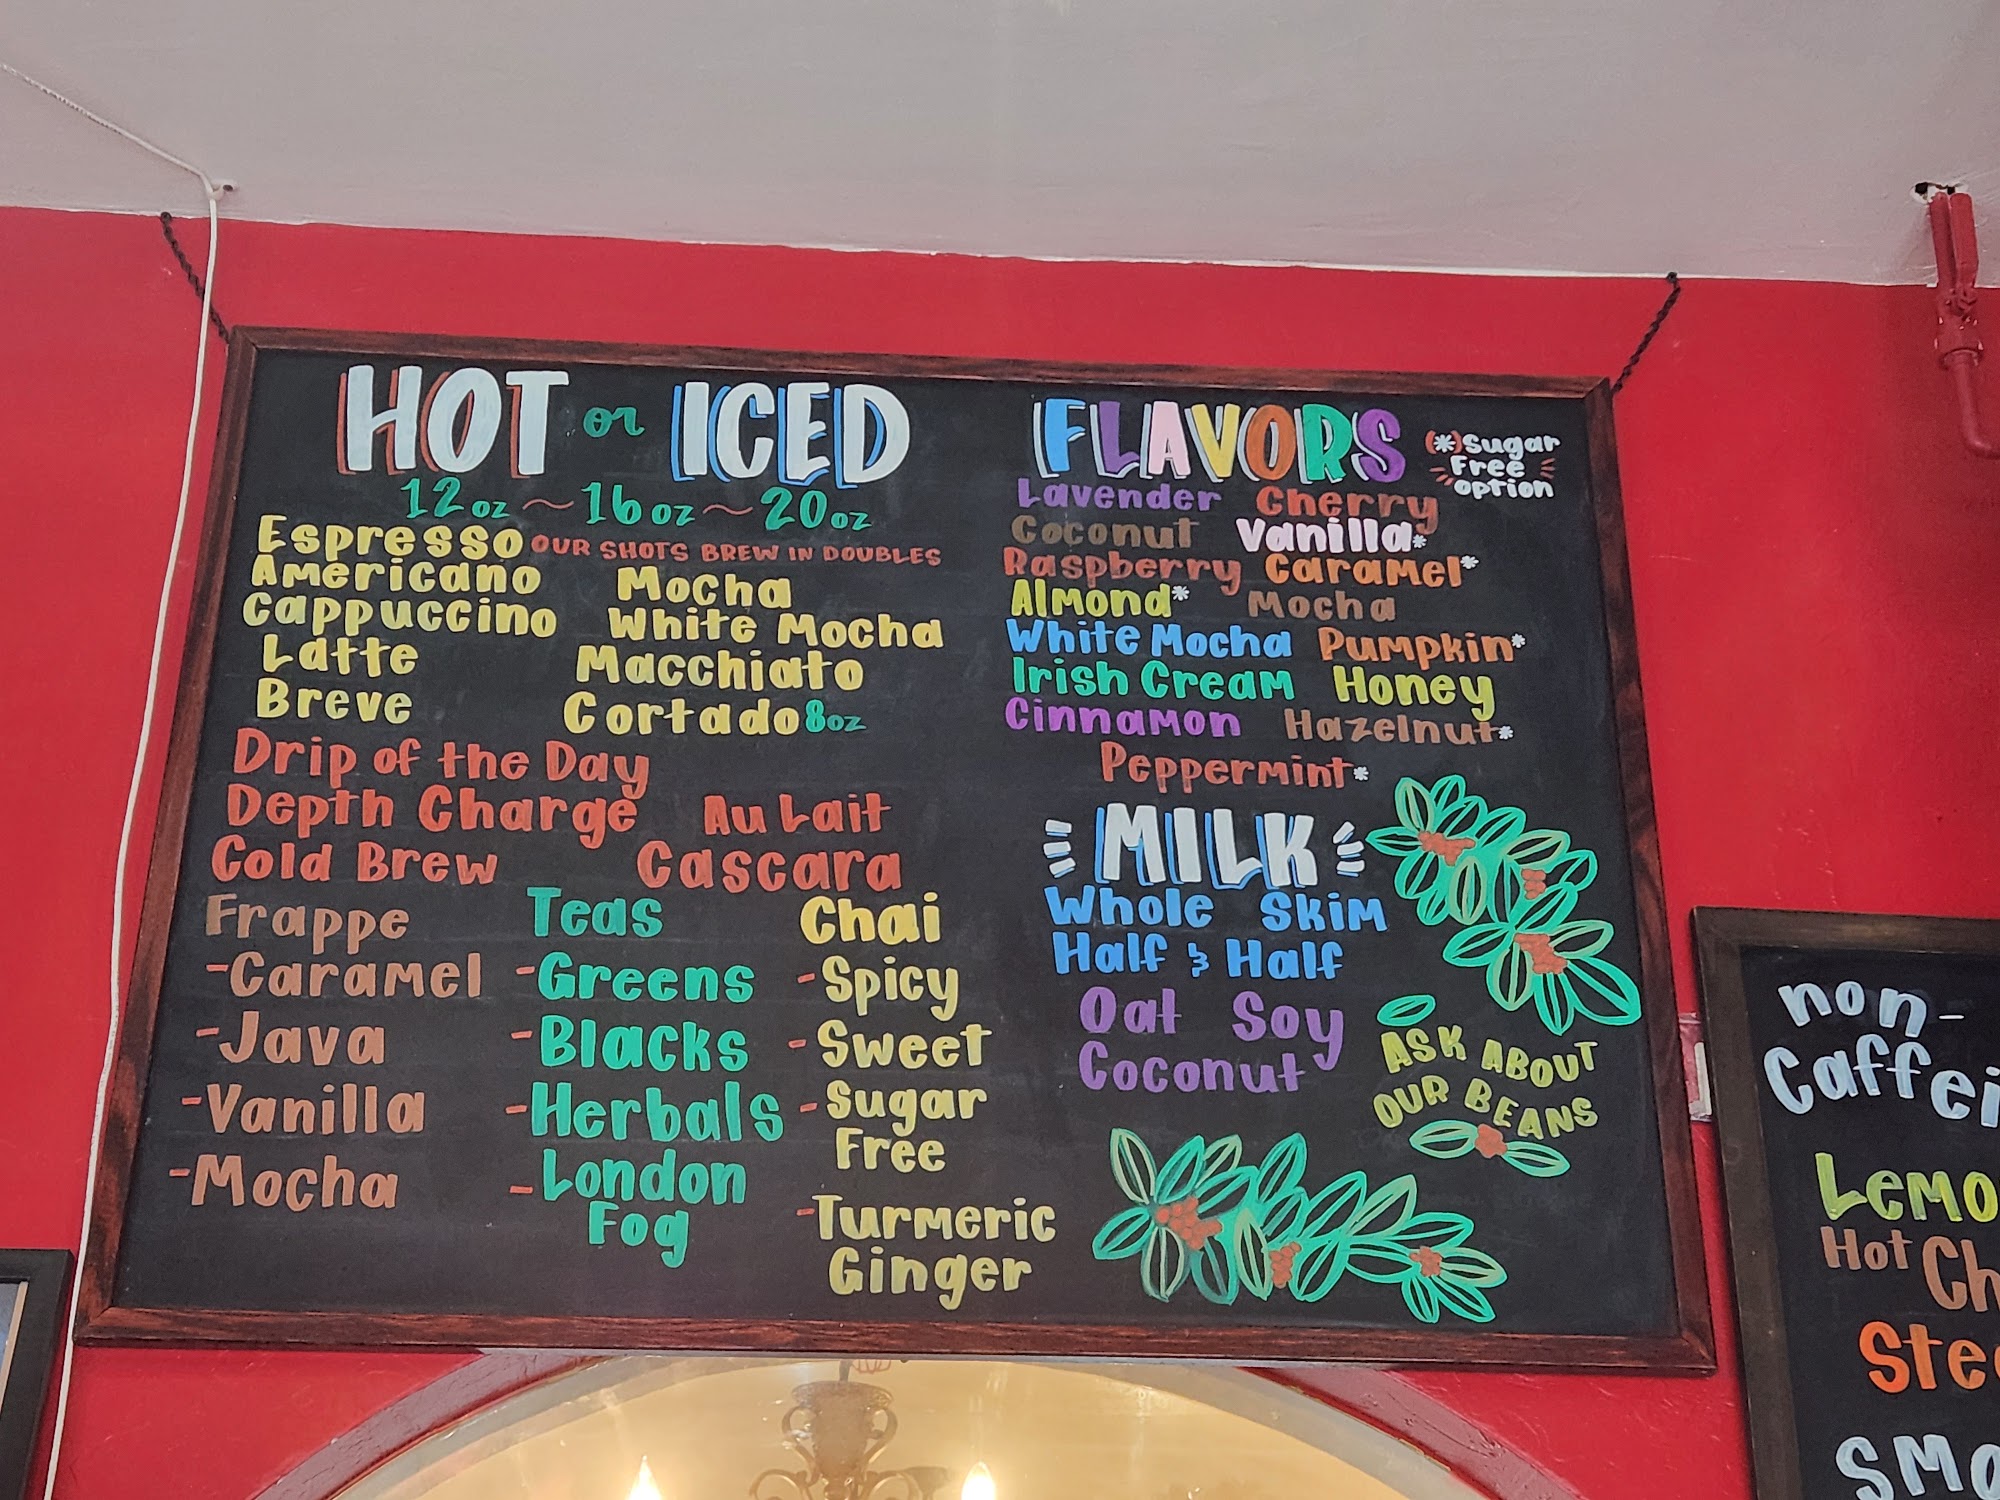 HOT or ICED
12oz ~ 16oz ~ 20oz
Espresso OUR SHOTS BREW IN DOUBLES
Americano Mocha
Cappuccino White Mocha
Latte Macchiato
Breve Cortado 8oz
Drip of the Day
Depth Charge Au Lait
Cold Brew Cascara
Frappe
-Caramel
-Java
-Vanilla
-Mocha
Teas
-Greens
-Blacks
-Herbals
-London
Fog
Chai
-Spicy
-Sweet
-Sugar
Free
-Turmeric
Ginger
FLAVORS
(*)Sugar
Free
option
Lavender Cherry
Coconut Vanilla*
Raspberry Caramel*
Almond* Mocha
White Mocha Pumpkin*
Irish Cream Honey
Cinnamon Hazelnut*
Peppermint*
MILK
Whole Skim
Half & Half
Oat Soy
Coconut
ASK ABOUT
OUR BEANS
non-
Caffei
Lemo
Hot Ch
Ste
Smo